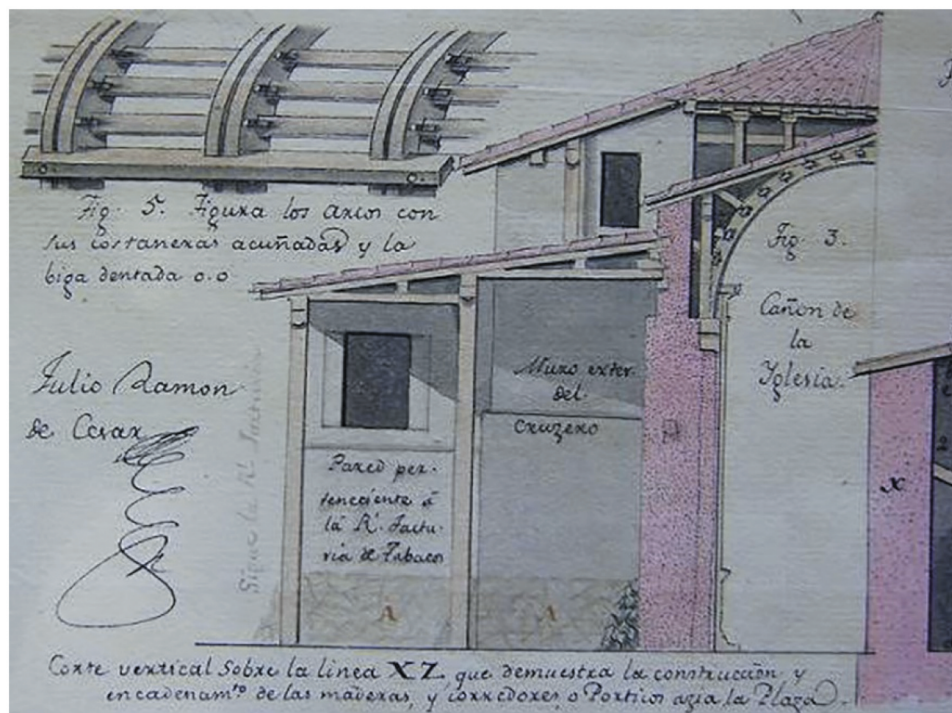 Fig. 5. Figura los arcos con
sus costaneras acuñadas y la
biga dentada o.o
Fig. 3.
Cañon de
la
Yglesia.
Julio Ramon
de Cesar
Muro exter.
del.
Cruzero
Pared per-
teneciente â
lâ Rl. Factu-
ria de Tabacos
Sigue la Rl. Facturia
A
A
X
Corte vertical Sobre la linea XZ que demuestra la construcción y
encadenamto de las maderas, y corredores, o Porticos azia la Plaza.